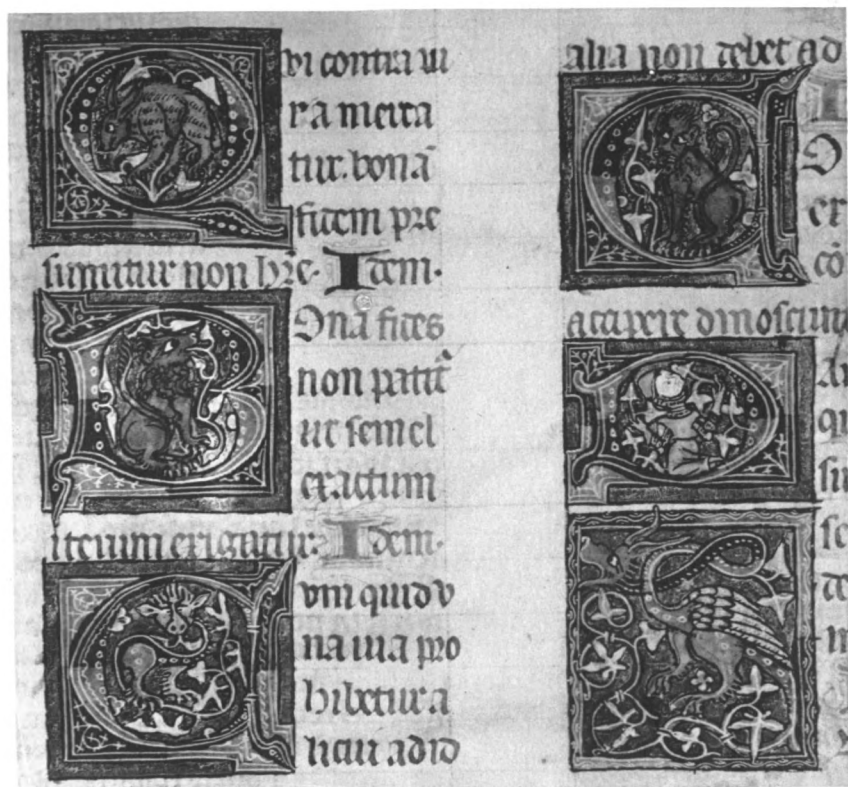 Qvi contra iu
ra merca
tur. bonā
fidem pre
sumitur non hr̄e. Idem.
BOna fides
non patit᷑
ut semel
exactum
iterum exigatur. Idem.
Cvm quid v
na uia pro
hibetur a
licui ad id
alia non debet ad
CO
ex
cō
accipere dinoscunt
DA
qu
su
se
de